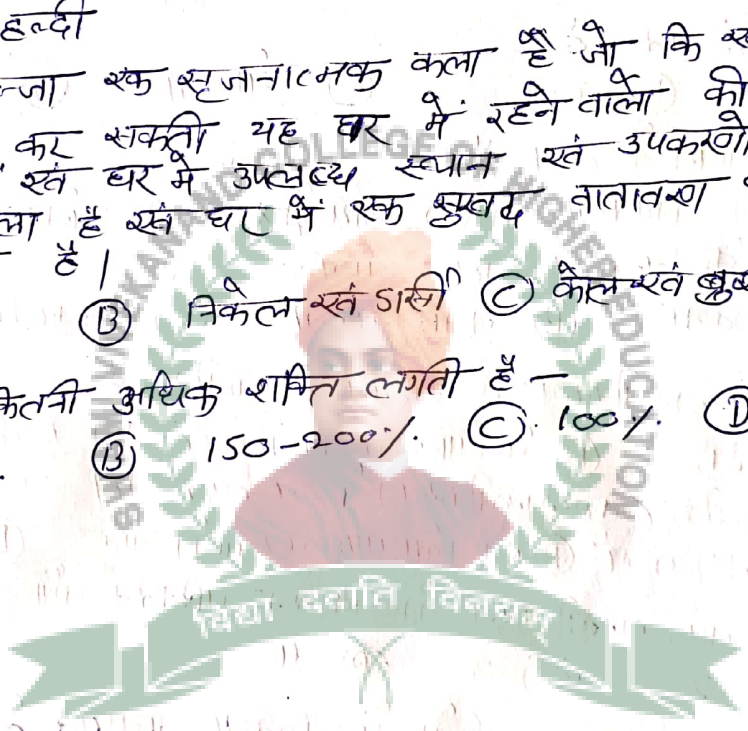 हल्दी
ज्जा एक सृजनात्मक कला है जो कि
कर सकती यह घर में रहने वालो की
एवं घर मे उपलब्ध स्थान एवं उपकरणो
ला है एवं घर में एक सुखद वातावरण
है।
(B) निकेल एवं डार्सी (C) केल एवं
कितनी अधिक शक्ति लगती है –
(B) 150-200%. (C). 100%. (D)
SWAMI VIVEKANAND COLLEGE OF HIGHER EDUCATION
विद्या ददाति विनयम्